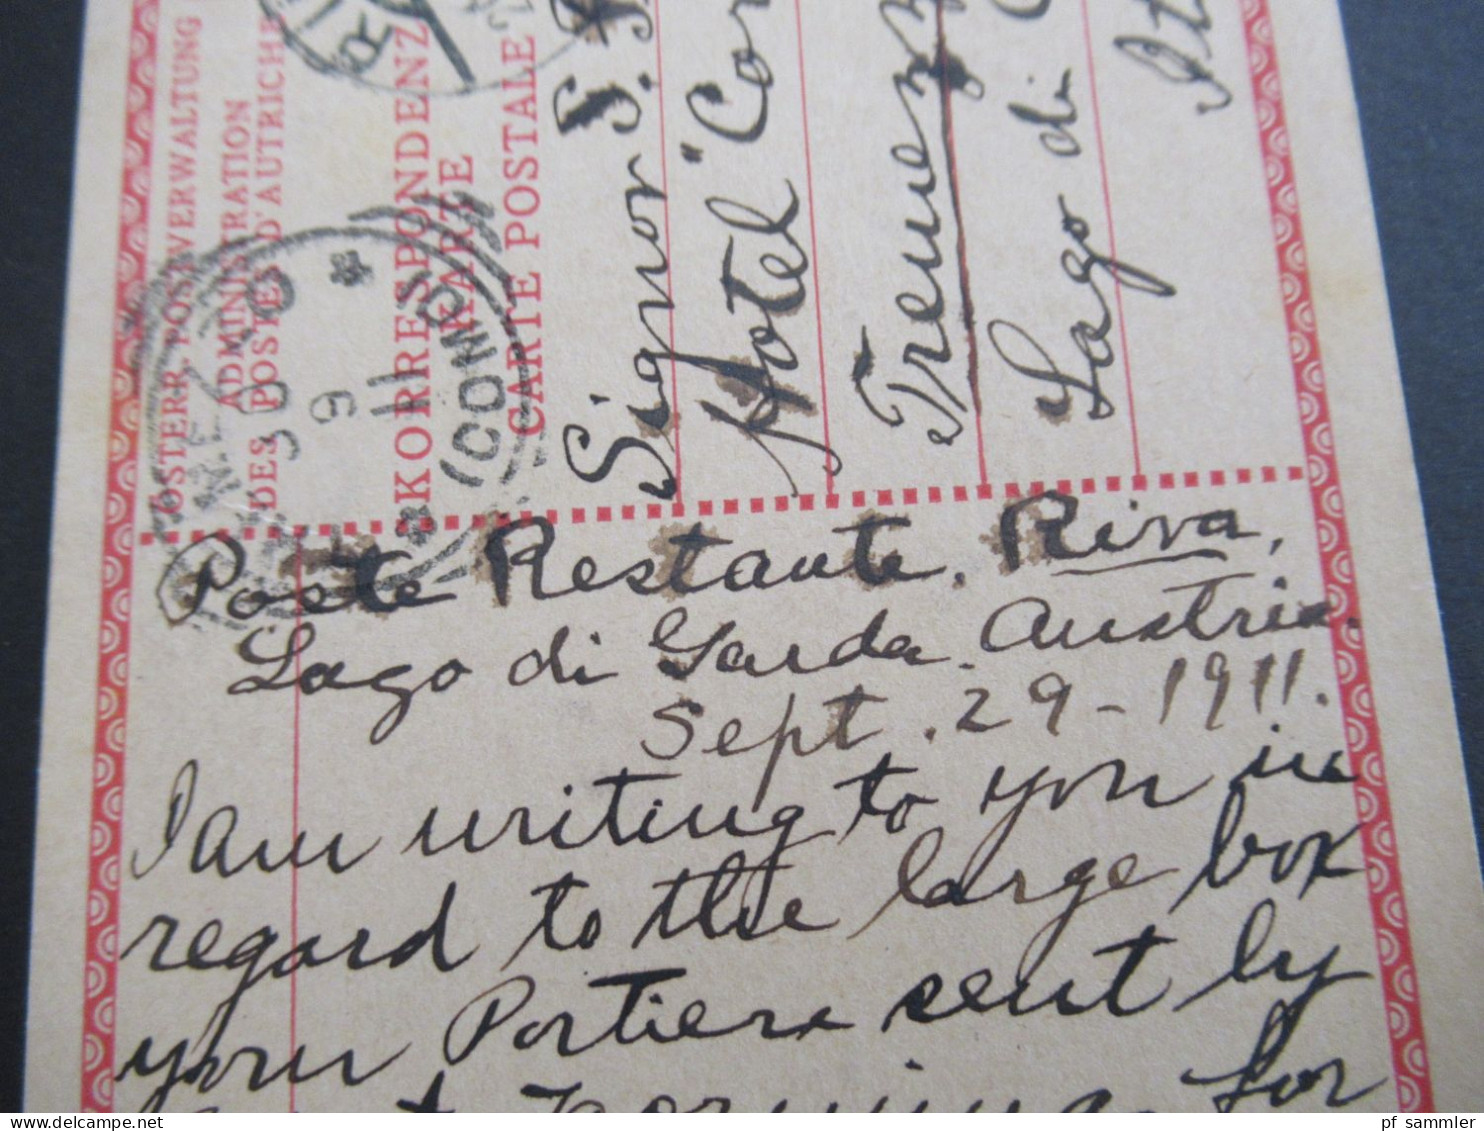 ÖSTERR. POSTVERWALTUNG
ADMINISTRATION
DES POSTES D'AUTRICHE
KORRESPONDENZ
KARTE
CARTE POSTALE
MEZZO
30
9
11
(COMO)
Signor
Hotel "Cor
Tremezz
Lago di
It
Poste Restante. Riva,
Lago di Garda. Austria.
Sept. 29-1911.
I am writing to you in
regard to the large box
your Portiere sent by
for
pf_sammler